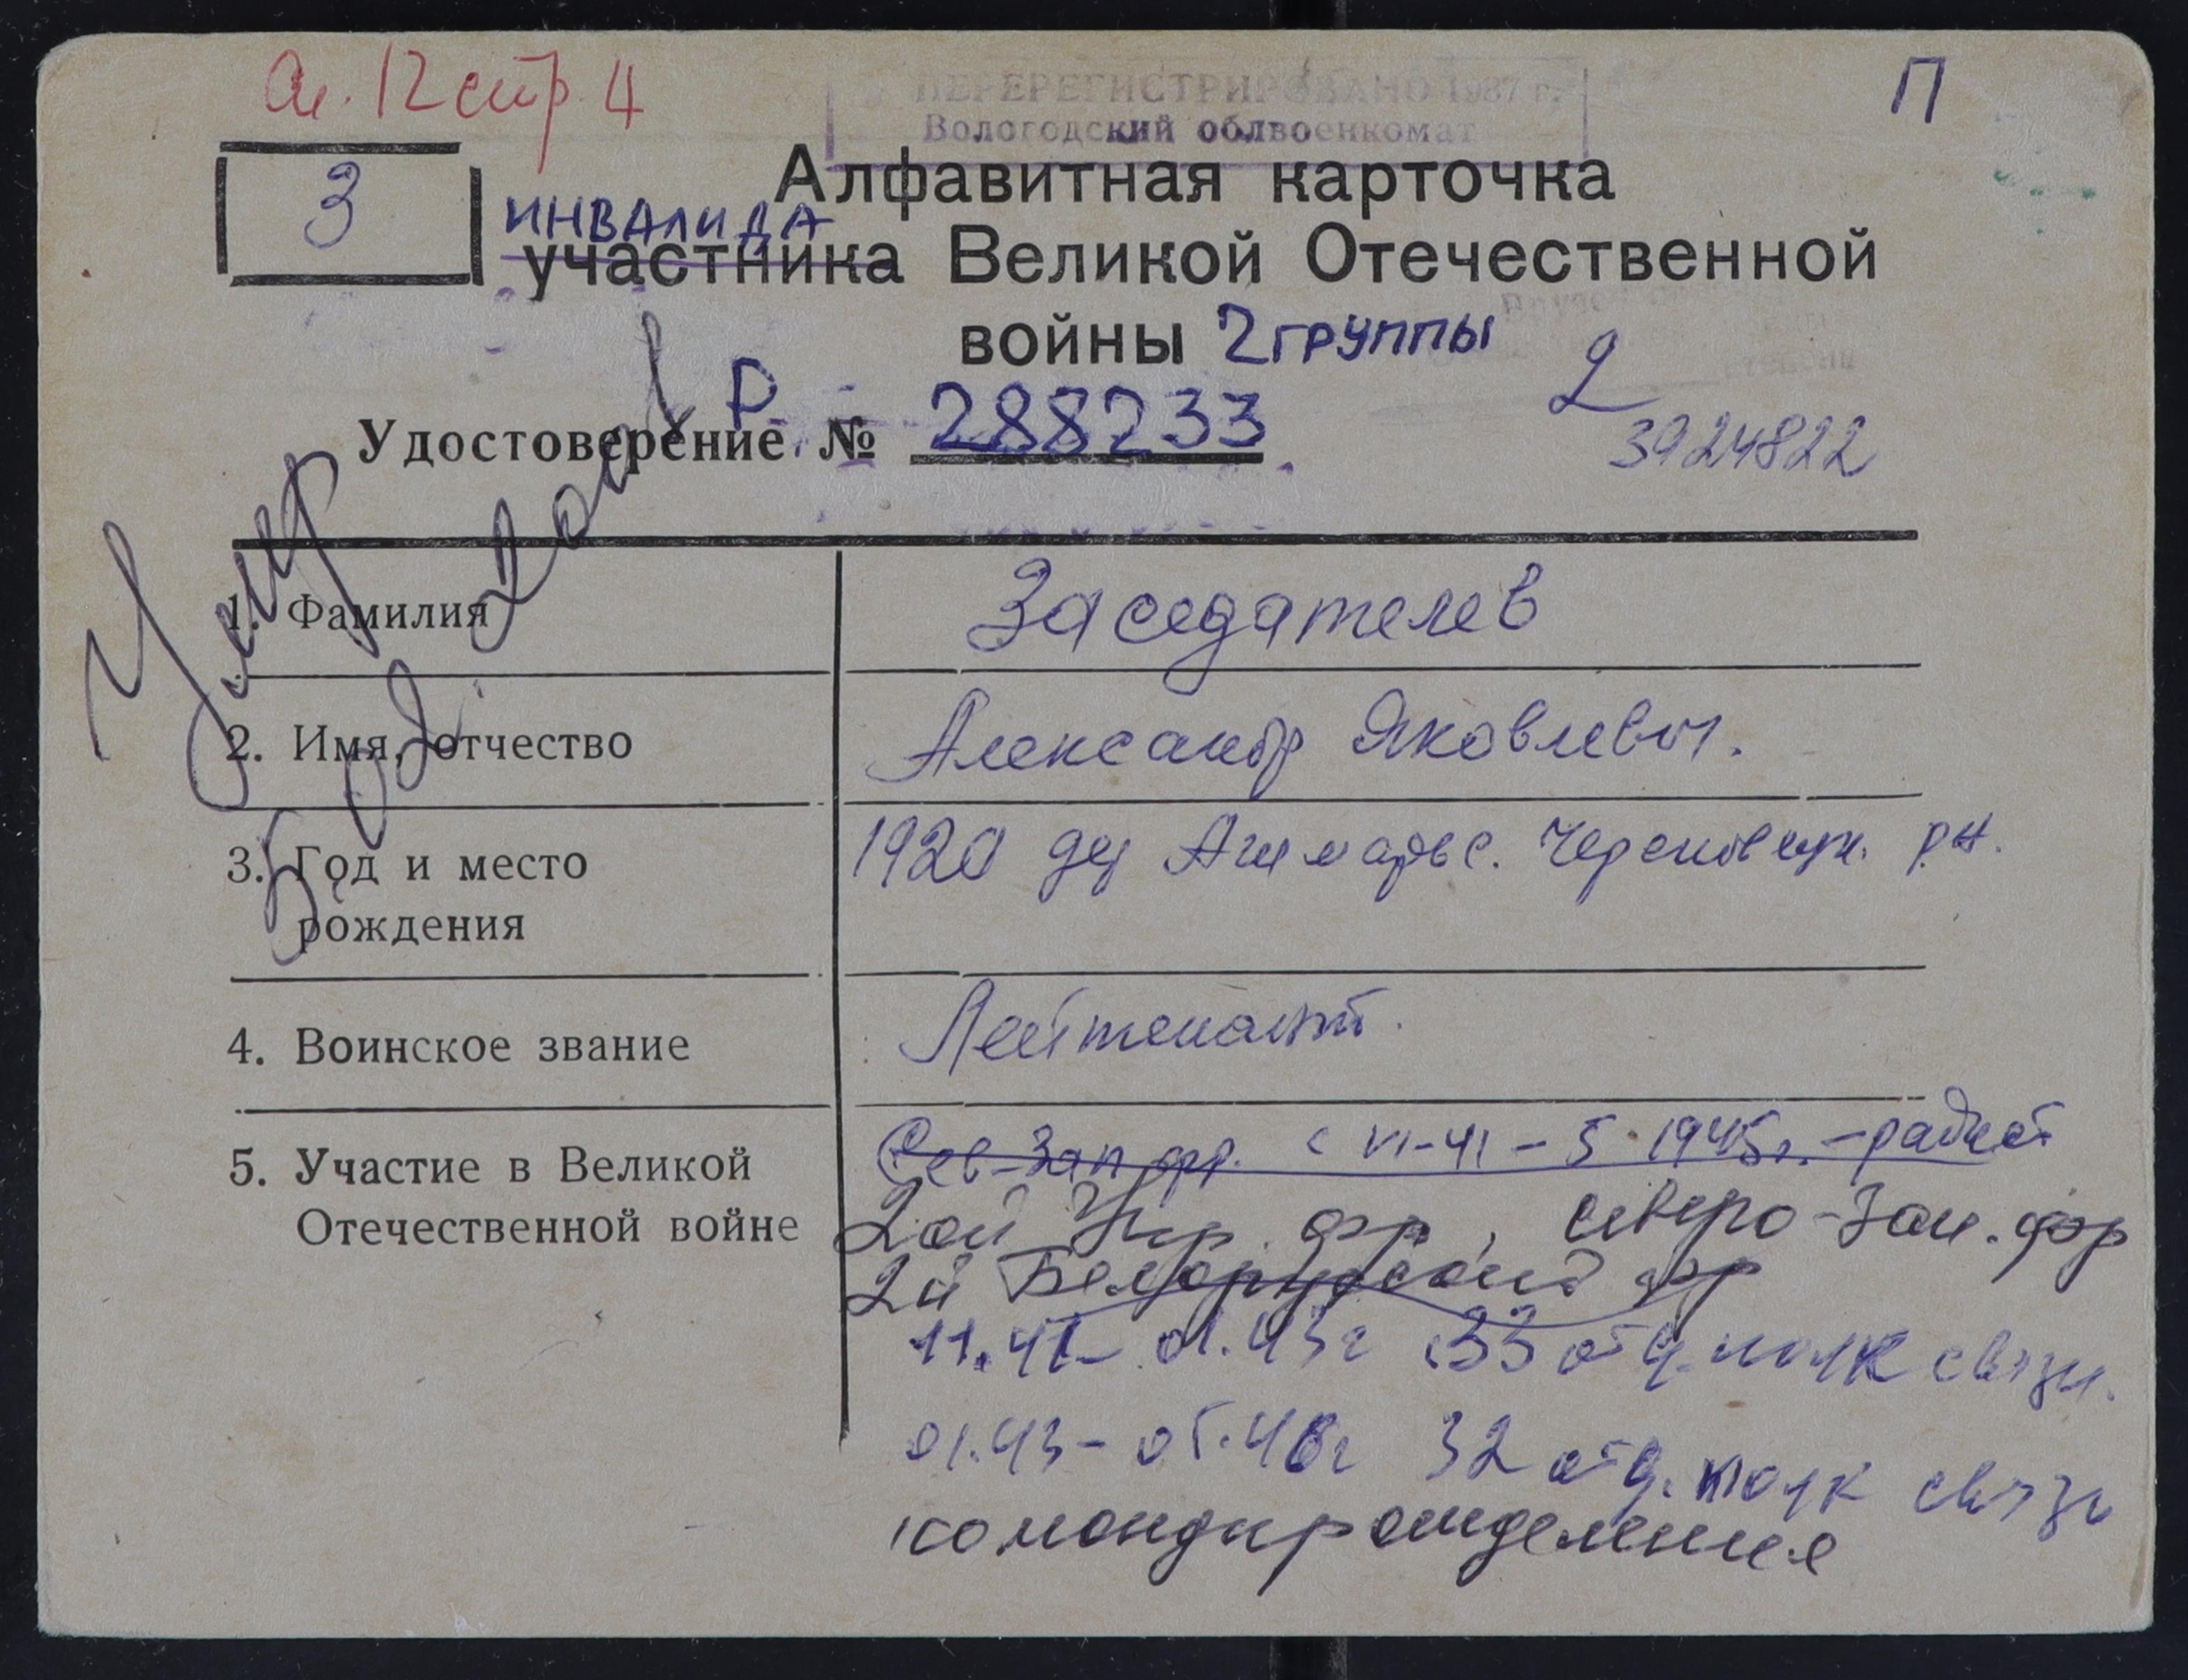 ал. 12 стр. 4
ПЕРЕРЕГИСТРИРОВАНО 1987 г.
Вологодский облвоенкомат
П
З
Алфавитная карточка
ИНВАЛИДА
участника Великой Отечественной
войны 2 ГРУППЫ
2
Р
Удостоверение № 288233
3924822
Умер
1. Фамилия Заседателев
2. Имя, отчество Александр Яковлевич.
3. Год и место рождения 1920 Череповецк. р-н.
4. Воинское звание Лейтенант.
5. Участие в Великой Отечественной войне
Сев-Зап фр. с VI-41 - 5. 1945г. - радист
2ой Укр. фр, северо-зап. фр
2й Белорусский фр
11.41- 01.43г 33 отд. полк связи.
01.43- 05.46г 32 отд. полк связи
командир отделения